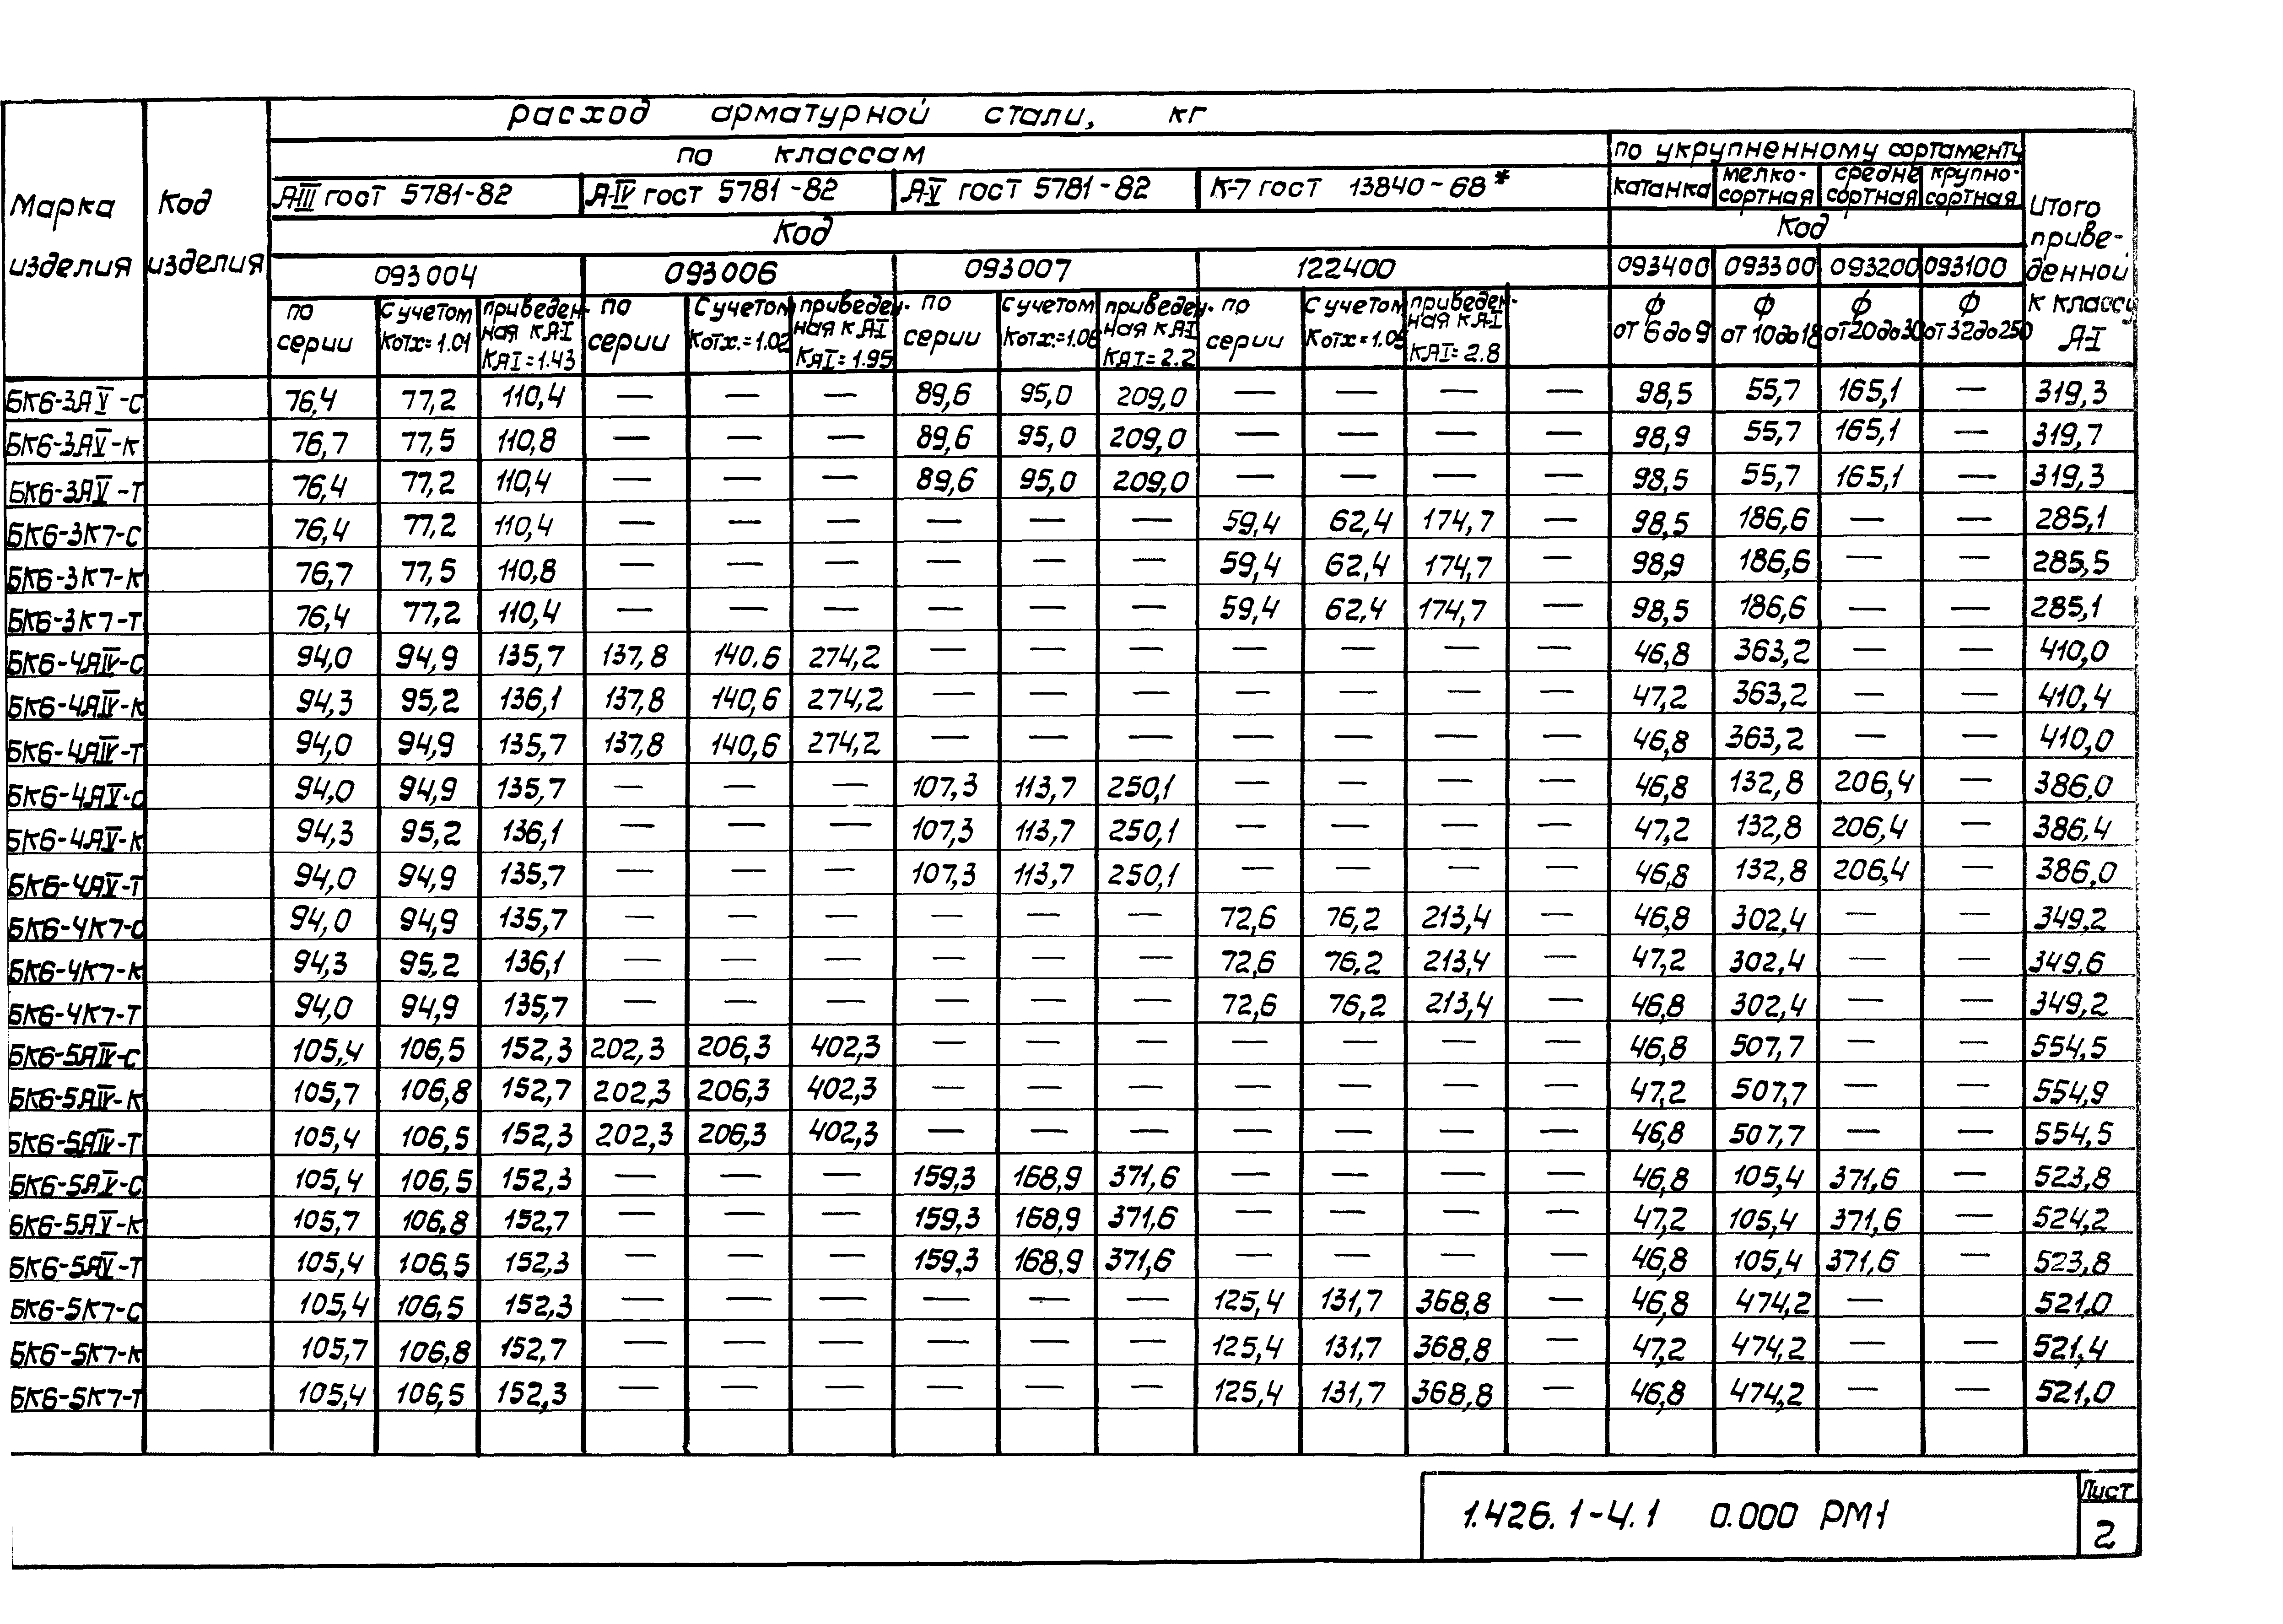 расход арматурной стали, кг
по классам
по укрупненному сортаменту
Марка изделия
Код изделия
А-III гост 5781-82
А-IV гост 5781-82
А-V гост 5781-82
К-7 гост 13840-68*
катанка
мелко-сортная
средне сортная
крупно-сортная
Итого приве-денной к классу А-I
Код
Код
093004
093006
093007
122400
093400
093300
093200
093100
по серии
С учетом Котх=1.01
приведен-ная к А-I КАI=1.43
по серии
С учетом Котх.=1.02
приведен-ная к А-I КАI=1.95
по серии
С учетом Котх.=1.06
приведен-ная к АI КАI=2.2
по серии
С учетом Котх=1.05
приведен-ная к А-I КАI=2.8
ф от 6 до 9
ф от 10 до 18
ф от 20 до 30
ф от 32 до 250
БК6-3АV-С 76,4 77,2 110,4 — — — 89,6 95,0 209,0 — — — — 98,5 55,7 165,1 — 319,3
БК6-3АV-К 76,7 77,5 110,8 — — — 89,6 95,0 209,0 — — — — 98,9 55,7 165,1 — 319,7
БК6-3АV-Т 76,4 77,2 110,4 — — — 89,6 95,0 209,0 — — — — 98,5 55,7 165,1 — 319,3
БК6-3К7-С 76,4 77,2 110,4 — — — — — — 59,4 62,4 174,7 — 98,5 186,6 — — 285,1
БК6-3К7-К 76,7 77,5 110,8 — — — — — — 59,4 62,4 174,7 — 98,9 186,6 — — 285,5
БК6-3К7-Т 76,4 77,2 110,4 — — — — — — 59,4 62,4 174,7 — 98,5 186,6 — — 285,1
БК6-4АIV-С 94,0 94,9 135,7 137,8 140,6 274,2 — — — — — — — 46,8 363,2 — — 410,0
БК6-4АIV-К 94,3 95,2 136,1 137,8 140,6 274,2 — — — — — — — 47,2 363,2 — — 410,4
БК6-4АIV-Т 94,0 94,9 135,7 137,8 140,6 274,2 — — — — — — — 46,8 363,2 — — 410,0
БК6-4АV-С 94,0 94,9 135,7 — — — 107,3 113,7 250,1 — — — — 46,8 132,8 206,4 — 386,0
БК6-4АV-К 94,3 95,2 136,1 — — — 107,3 113,7 250,1 — — — — 47,2 132,8 206,4 — 386,4
БК6-4АV-Т 94,0 94,9 135,7 — — — 107,3 113,7 250,1 — — — — 46,8 132,8 206,4 — 386,0
БК6-4К7-С 94,0 94,9 135,7 — — — — — — 72,6 76,2 213,4 — 46,8 302,4 — — 349,2
БК6-4К7-К 94,3 95,2 136,1 — — — — — — 72,6 76,2 213,4 — 47,2 302,4 — — 349,6
БК6-4К7-Т 94,0 94,9 135,7 — — — — — — 72,6 76,2 213,4 — 46,8 302,4 — — 349,2
БК6-5АIV-С 105,4 106,5 152,3 202,3 206,3 402,3 — — — — — — — 46,8 507,7 — — 554,5
БК6-5АIV-К 105,7 106,8 152,7 202,3 206,3 402,3 — — — — — — — 47,2 507,7 — — 554,9
БК6-5АIV-Т 105,4 106,5 152,3 202,3 206,3 402,3 — — — — — — — 46,8 507,7 — — 554,5
БК6-5АV-С 105,4 106,5 152,3 — — — 159,3 168,9 371,6 — — — — 46,8 105,4 371,6 — 523,8
БК6-5АV-К 105,7 106,8 152,7 — — — 159,3 168,9 371,6 — — — — 47,2 105,4 371,6 — 524,2
БК6-5АV-Т 105,4 106,5 152,3 — — — 159,3 168,9 371,6 — — — — 46,8 105,4 371,6 — 523,8
БК6-5К7-С 105,4 106,5 152,3 — — — — — — 125,4 131,7 368,8 — 46,8 474,2 — 521,0
БК6-5К7-К 105,7 106,8 152,7 — — — — — — 125,4 131,7 368,8 — 47,2 474,2 — — 521,4
БК6-5К7-Т 105,4 106,5 152,3 — — — — — — 125,4 131,7 368,8 — 46,8 474,2 — — 521,0
1.426.1-4.1 0.000 РМ1
Лист
2